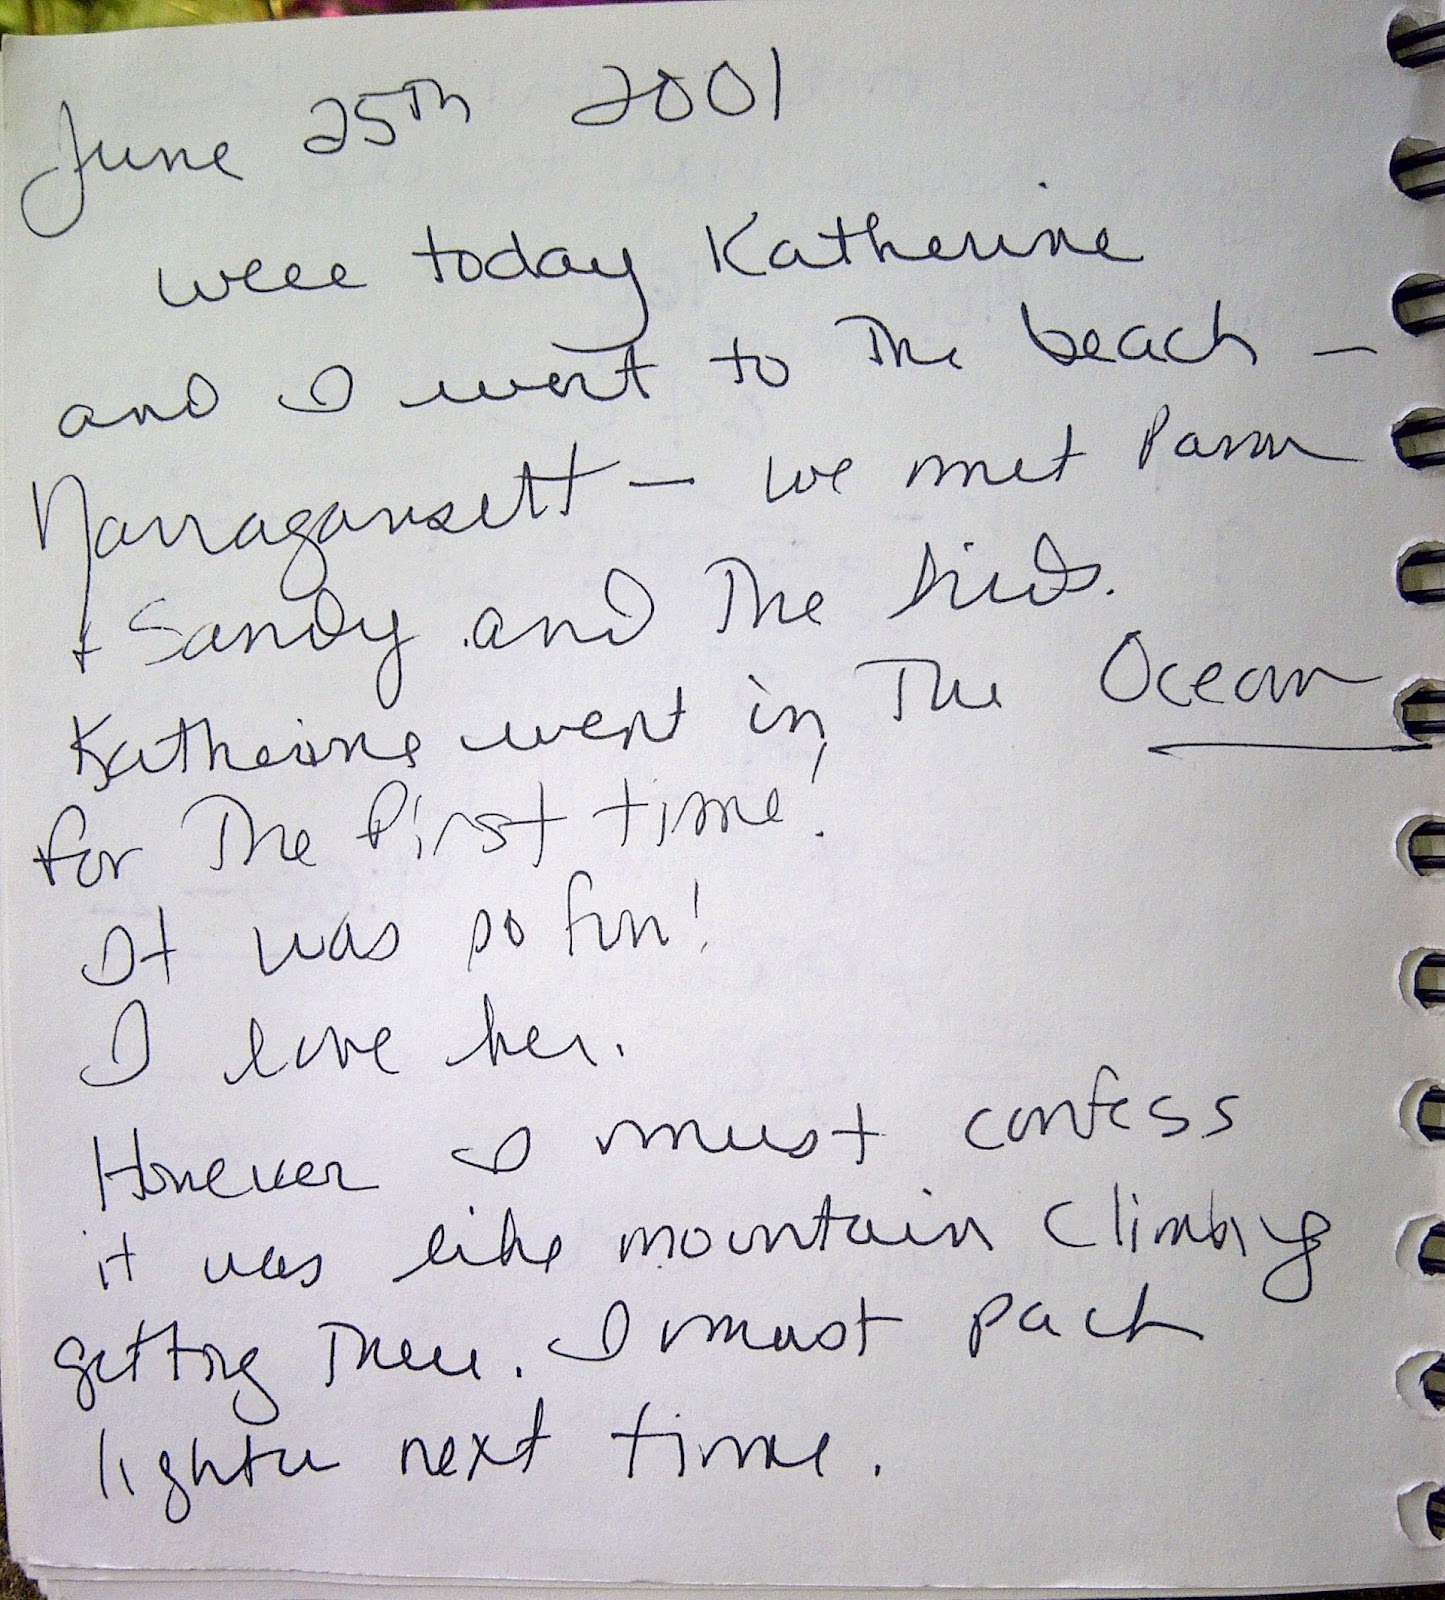 June 25Th 2001
well today Katherine
and I went to The beach —
Narragansett — we met Pam
+ Sandy and The kids.
Katherine went in The Ocean
for The first time!
It was so fun!
I love her.
However I must confess
it was like mountain climbing
getting There. I must pack
lighter next time.